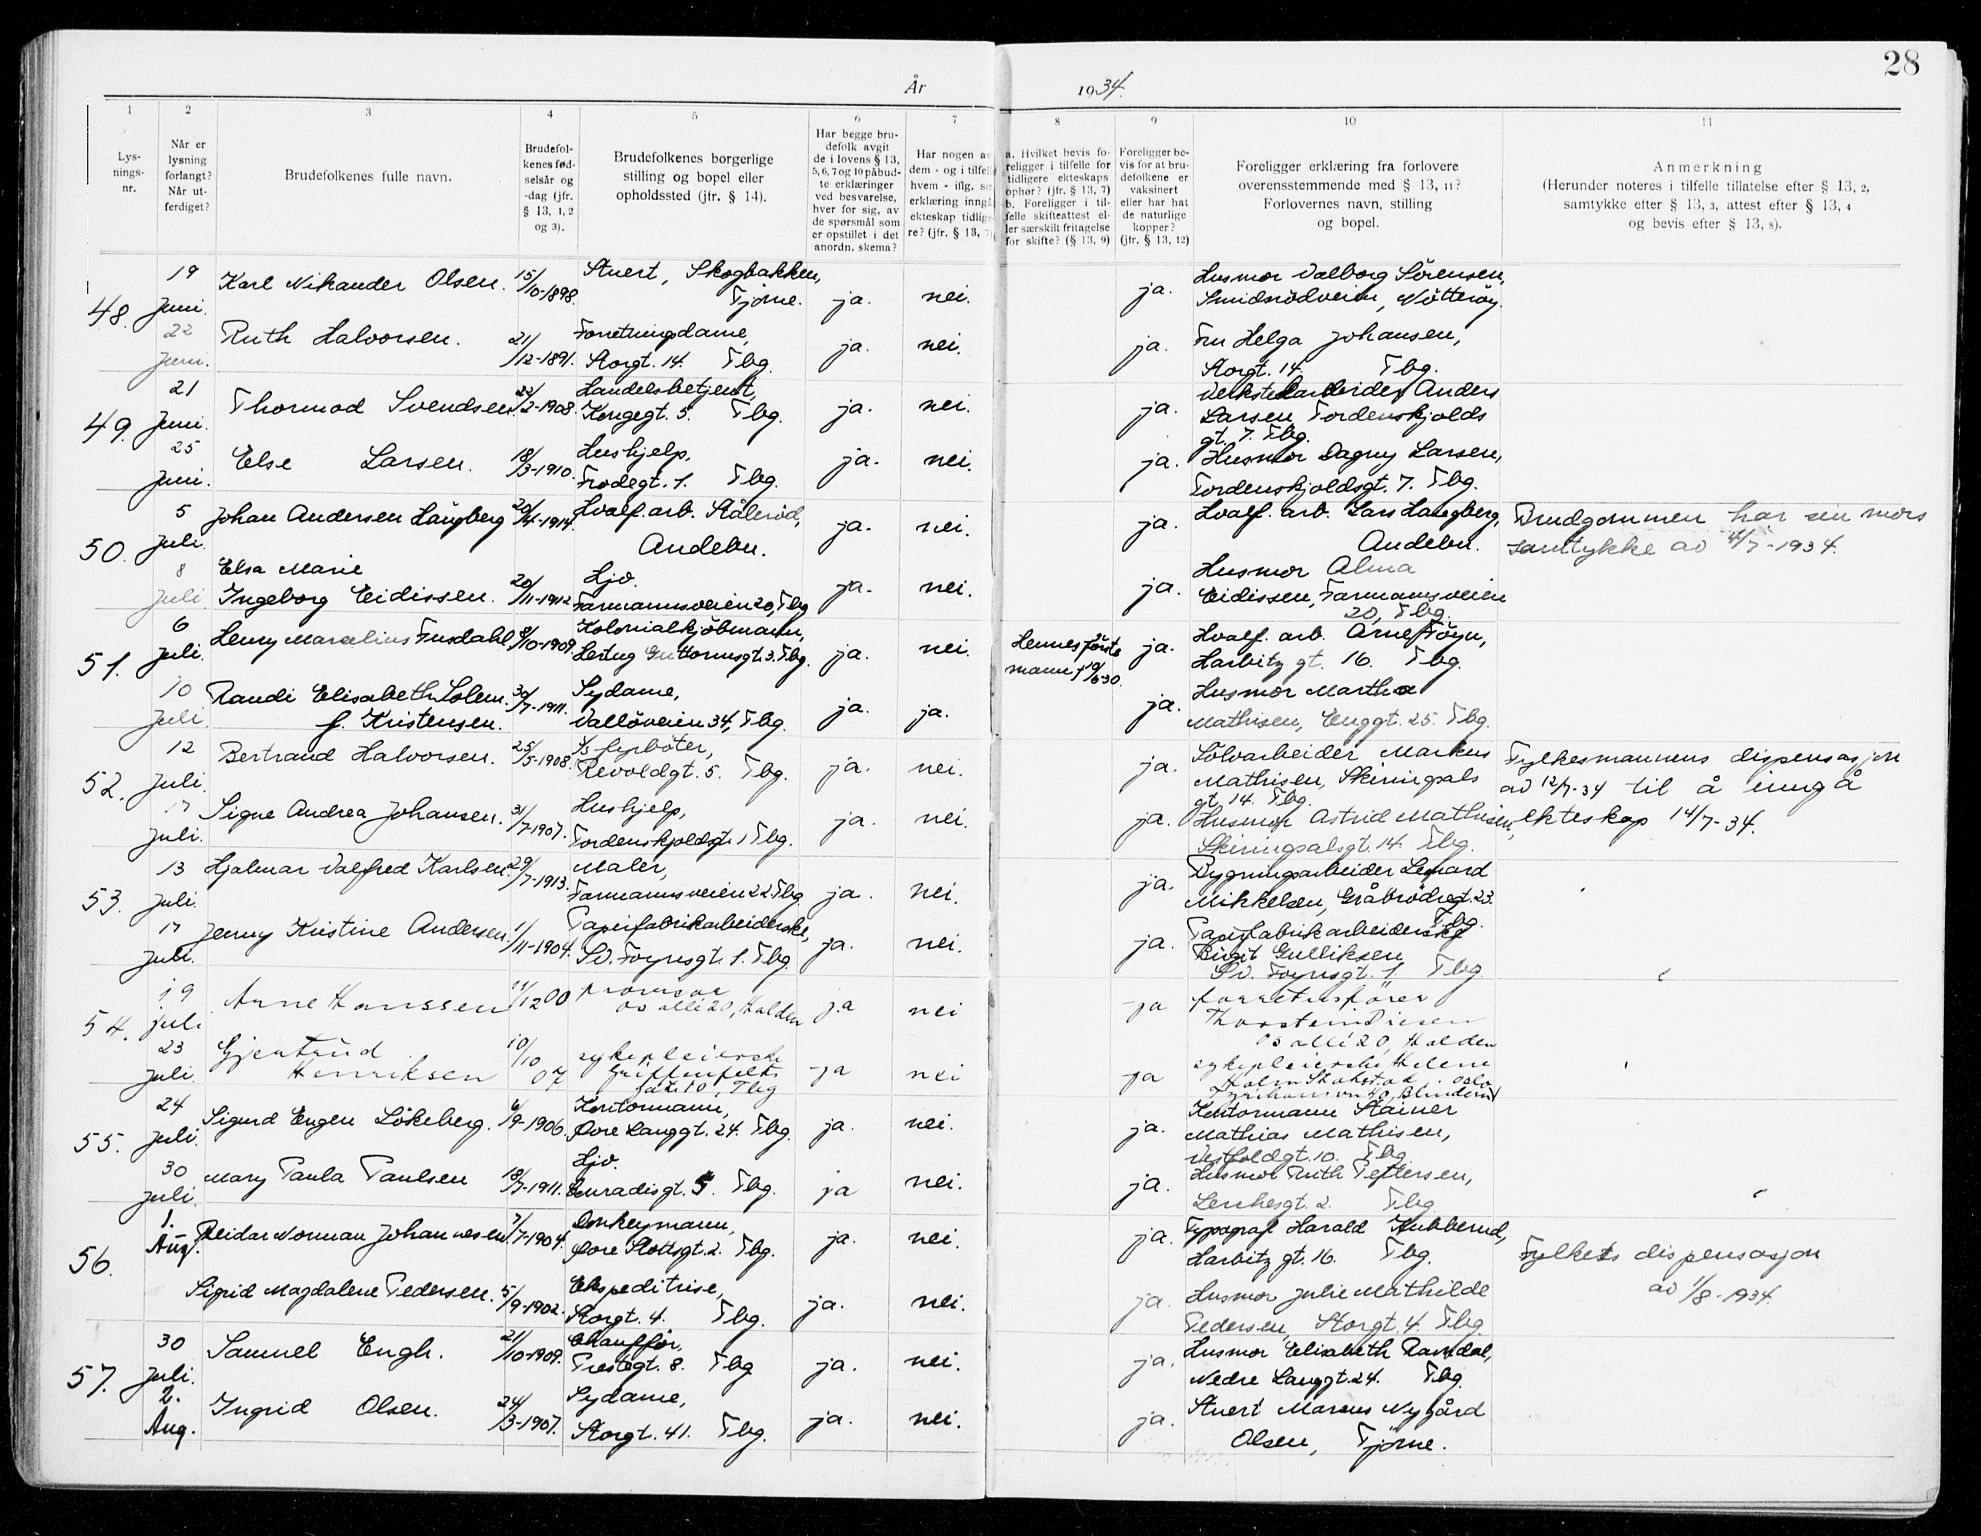 28
År 1934.
1 2 3 4 5 6 7 8 9 10 11
Lysningsnr.
Når er lysning forlangt? Når utferdiget?
Brudefolkenes fulle navn.
Brudefolkenes fødselsår og -dag (jfr. § 13, 1, 2 og 3).
Brudefolkenes borgerlige stilling og bopel eller opholdssted (jfr. § 14).
Har begge brudefolk avgit de i lovens § 13, 5, 6, 7 og 10 påbudte erklæringer ved besvarelse, hver for sig, av de spørsmål som er opstillet i det anordn. skema?
Har nogen av dem - og i tilfelle hvem - iflg. sin erklæring inngått ekteskap tidligere? (jfr. § 13, 7)
a. Hvilket bevis foreligger i tilfelle for tidligere ekteskaps ophør? (jfr. § 13, 7) b. Foreligger i tilfelle skifteattest eller særskilt fritagelse for skifte? (§ 13, 9)
Foreligger bevis for at brudefolkene er vaksinert eller har hat de naturlige kopper? (jfr. § 13, 12)
Foreligger erklæring fra forlovere overensstemmende med § 13, 11? Forlovernes navn, stilling og bopel.
Anmerkning (Herunder noteres i tilfelle tillatelse efter § 13, 2, samtykke efter § 13, 3, attest efter § 13, 4 og bevis efter § 13, 8).
48. 19 Juni. Karl Nikander Olsen. 15/10-1898. Stuert, Skogbakken, Tjøme. ja. nei. ja. Husmor Valborg Sörensen, Smidsrödveien, Nötteröy.
22 Juni. Ruth Halvorsen. 21/12-1891. Forretningsdame, Storgt. 14. Tbg. ja. nei. ja. Fru Helga Johansen, Storgt. 14. Tbg.
49. 21 Juni. Thormod Svendsen 22/2-1908. Handelsbetjent, Kongegt. 5. Tbg. ja. nei. ja. Verkstedarbeider Anders Larsen Tordenskjolds gt. 7. Tbg.
25 Juni. Else Larsen. 18/3-1910. Hushjelp, Frodegt. 1. Tbg. ja. nei. ja. Husmor Dagny Larsen, Tordenskjoldsgt. 7. Tbg.
50. 5 Juli. Johan Andersen Haugberg 20/4-1914. Hvalf. arb. Stålerød, Andebu. ja. nei. ja. Hvalf. arb. Lars Haugberg, Andebu. Brudgommen har sin mors samtykke av 4/7-1934.
8 Juli. Elsa Marie Ingeborg Eidissen. 20/11-1912 Hjv. Farmannsveien 20, Tbg ja. nei. ja. Husmor Alma Eidissen, Farmannsveien 20, Tbg.
51. 6 Juli. Henry Marcelius Fusdahl 8/10-1909. Kolonialkjöbmann, Hertug Guttormsgt. 3. Tbg. ja. nei. Hennes første mann † 19/6-30. ja. Hvalf. arb. Arne Föyn, Harbitz gt. 16. Tbg.
10 Juli. Randi Elisabeth Solem f. Kristensen. 30/7-1911. Sydame, Vallöveien 34, Tbg. ja. ja. ja. Husmor Martha Mathisen, Enggt. 25. Tbg.
52. 12 Juli. Bertrand Halvorsen. 25/5-1908. fyrböter, Revoldgt. 5. Tbg. ja. nei. ja. Sölvarbeider Markus Mathisen, Skiringsals gt. 14. Tbg. Fylkesmannens dispensasjon av 12/7-34 til å inngå ekteskap 14/7-34.
17 Juli. Signe Andrea Johansen. 31/7-1907. Hushjelp, Tordenskjoldsgt. 1 Tbg. ja. nei. ja. Husmor Astrid Mathisen, Skiringsalsgt. 14. Tbg.
53. 13 Juli. Hjalmar Valfred Karlsen 29/7-1913. Maler, Farmannsveien 22 Tbg ja. nei. ja. Bygningsarbeider Lenard Mikkelsen, Gråbrödregt. 23. Tbg.
17 Juli. Jenny Kristine Andersen 1/11-1904. Papirfabrikarbeiderske, Sv. Foynsgt. 1. Tbg. ja. nei. ja. Papirfabrikarbeiderske Birgit Gulliksen Sv. Foynsgt. 1 Tbg
54. 19 juli Arne Hanssen 11/12 00 Os allé 20, Halden ja nei ja forretnsfører Thorstein Diesen Os alle 20, Halden
23 juli Gjertrud Henriksen 10/10 07 sykepleierske Griffenfelts gate 10, Tbg ja nei ja sykepleierske Helene Holm Oslo Blindern
55. 24 Juli. Sigurd Engen Lökeberg. 6/9-1906. Kontormann, Övre Langgt. 24. Tbg. ja. nei. ja. Kontormann Stainer Mathias Mathisen, Vestfoldgt. 10. Tbg
30 Juli. Mary Paula Paulsen 18/7-1911. Hjv. Conradisgt. 5. Tbg. ja nei. ja. Husmor Ruth Pettersen, Lerchesgt. 2. Tbg.
56. 1. Aug. Reidar Norman Johannesen. 7/7-1904. Donkeymann, Övre Slottsgt. 2. Tbg. ja. nei. ja. Typograf Harald Kubberud, Harbitz gt. 16. Tbg. Fylkets dispensasjon av 1/8-1934.
Sigrid Magdalene Pedersen. 5/9-1902. Ekspeditrise, Storgt. 4. Tbg. ja. nei. ja. Husmor Julie Mathilde Pedersen, Storgt. 4. Tbg.
57. 30 Juli. Samuel Engh. 21/10-1909. Chauffør, Prestegt. 8. Tbg ja. nei. ja. Husmor Elisabeth Ramdal, Nedre Langgt. 24. Tbg.
2. Aug. Ingrid Olsen. 24/3-1907. Sydame, Storgt. 41. Tbg. ja. nei. ja. Stuert Marius Nygård Olsen, Tjöme.